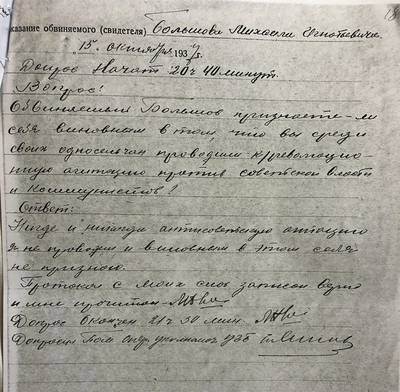 казание обвиняемого (свидетеля) Большова Михаила Игнатьевича
„15" октября 193 7 г.
Допрос Начат 20ч 40 минут.
Вопрос!
Обвиняемый Большов признаете-ли
себя виновным в том, что вы среди
своих односельчан проводили к/революцио-
нную агитацию против советской власти
и Коммунистов?
Ответ:
Нигде и никогда антисоветскую агитацию
я не проводил и виновным в этом себя
не признаю.
Протокол с моих слов записан верно
и мне прочитан
Допрос Окончен 21ч 30 мин.
Допросил Пом. опер уполномоч